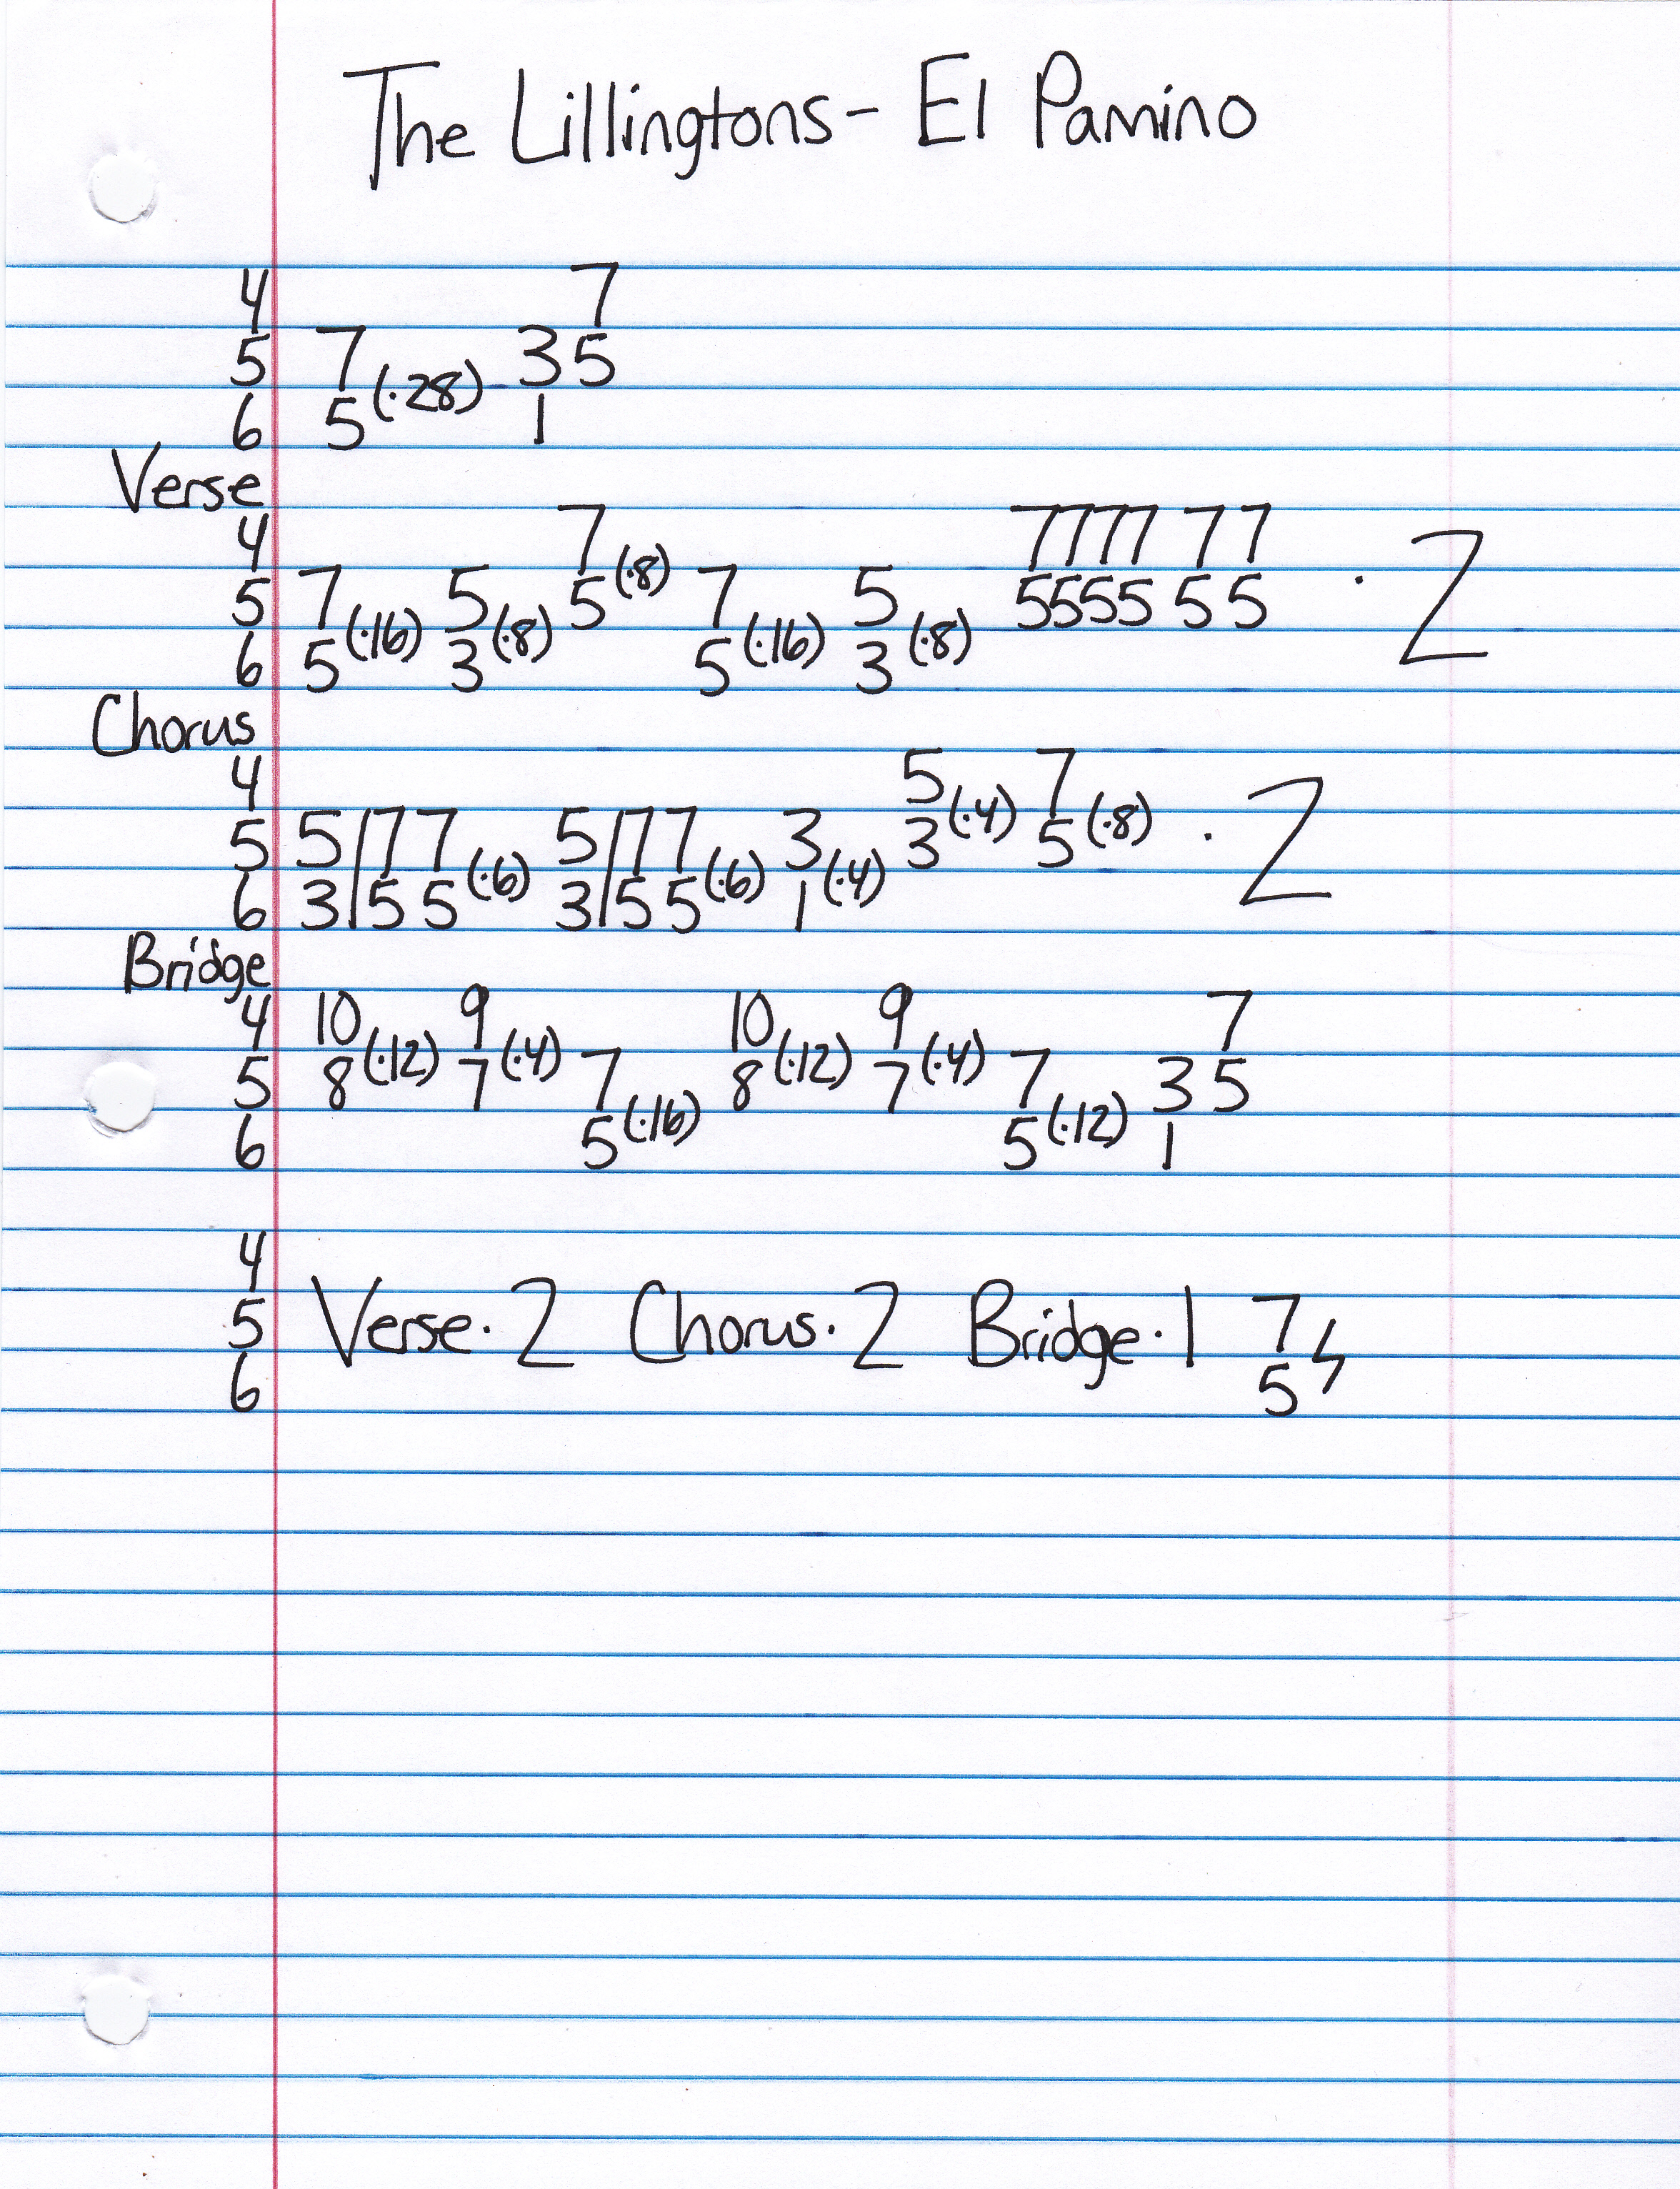 The Lillingtons - El Pamino
4 7
5 7 3 5
6 5 (·28) 1
Verse
4 7 7 7 7 7 7 7
5 7 5 5 (·8) 7 5 5 5 5 5 5 5 · 2
6 5 (·16) 3 (·8) 5 (·16) 3 (·8)
Chorus
4 5 7
5 5/7 7 5/7 7 3 3 (·4) 5 (·8) · 2
6 3/5 5 (·6) 3/5 5 (·6) 1 (·4)
Bridge
4 10 9 10 9 7
5 8 (·12) 7 (·4) 7 8 (·12) 7 (·4) 7 3 5
6 5 (·16) 5 (·12) 1
4
5 Verse · 2 Chorus · 2 Bridge · 1 7
6 5